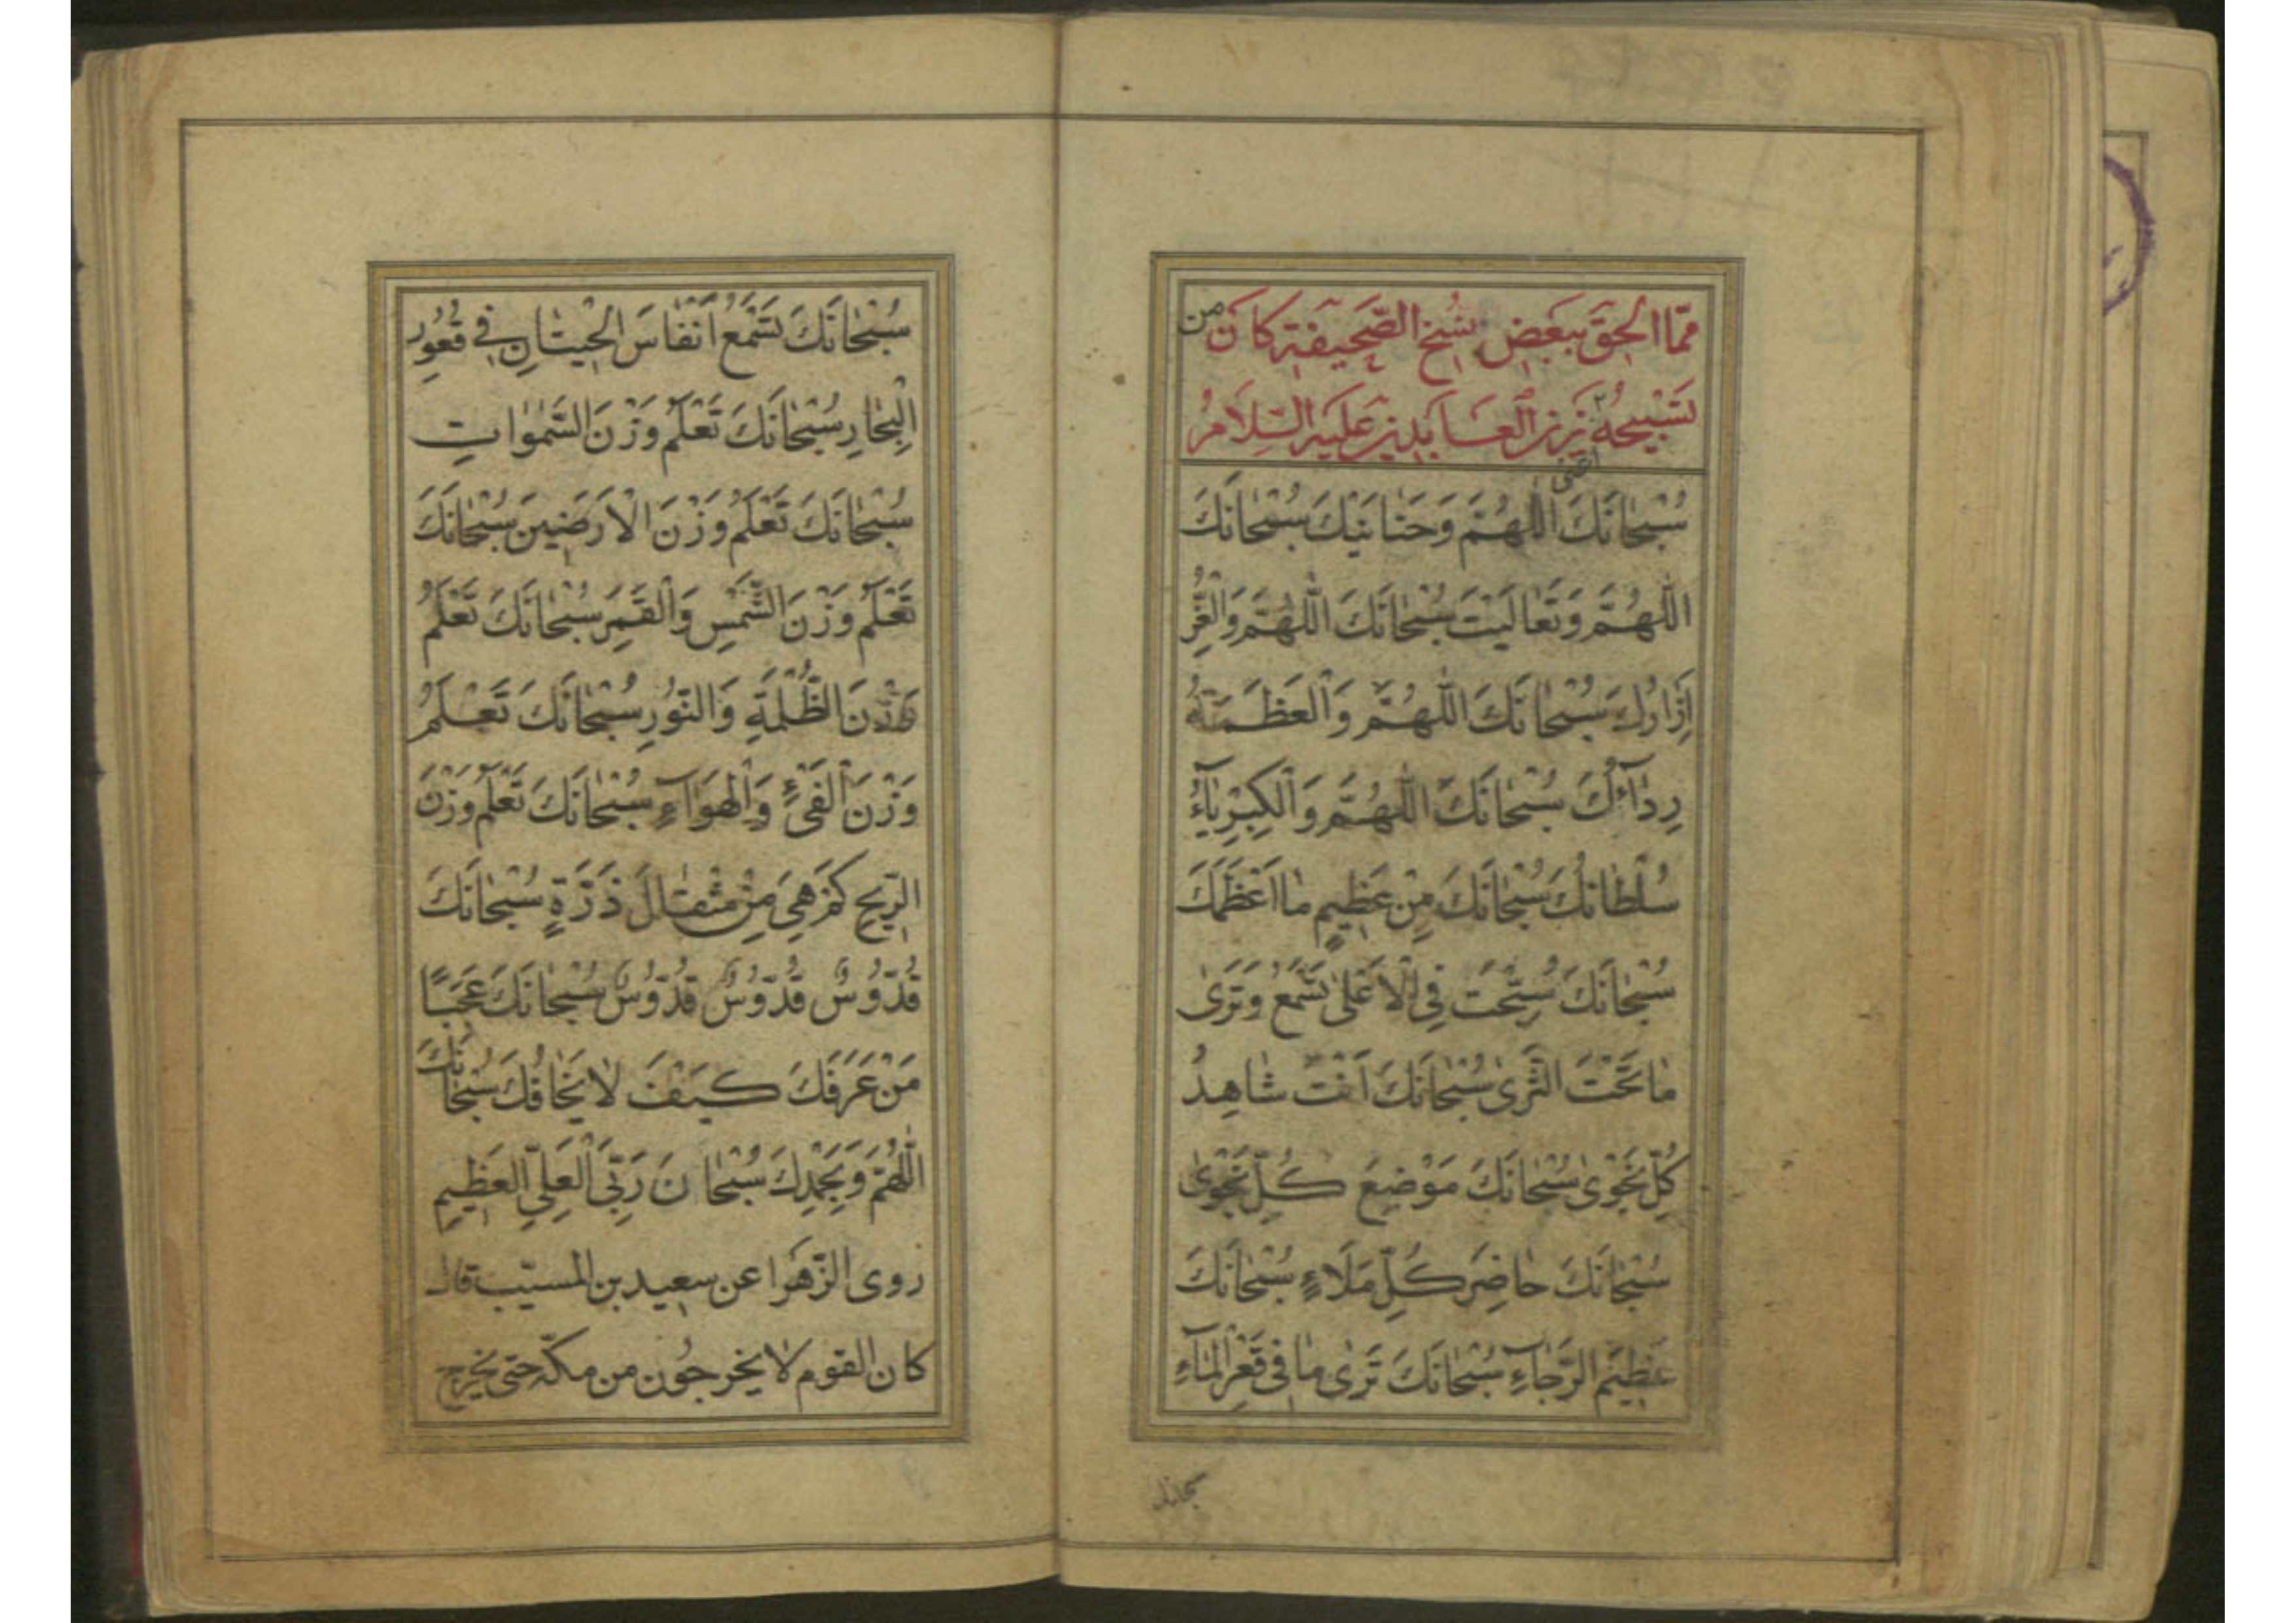 ممّا اُلحِقَ بِبَعضِ نُسَخِ الصَّحیفَةِ كانَ من
تَسْبیحِهِ زَیْنِ الْعَابِدینَ عَلَیْهِ السَّلامُ
اعنی
سُبْحانَكَ اللّهُمَّ وَحَنانَیْكَ سُبْحانَكَ
اللّهُمَّ وَتَعالَیْتَ سُبْحانَكَ اللّهُمَّ وَالْعِزُّ
اِزارُكَ سُبْحانَكَ اللّهُمَّ وَالْعَظَمَةُ
رِدآؤُكَ سُبْحانَكَ اللّهُمَّ وَالْكِبْرِیآءُ
سُلْطانُكَ سُبْحانَكَ مِنْ عَظیمٍ ما اَعْظَمَكَ
سُبْحانَكَ سُبِّحْتَ فِی الْاَعْلیٰ تَسْمَعُ وَتَرَیٰ
ما تَحْتَ الثَّریٰ سُبْحانَكَ اَنْتَ شاهِدُ
كُلِّ نَجْویٰ سُبْحانَكَ مَوْضِعَ كُلِّ نَجْویٰ
سُبْحانَكَ حاضِرَ كُلِّ مَلَاءٍ سُبْحانَكَ
عَظیمَ الرَّجآءِ سُبْحانَكَ تَریٰ ما فی قَعْرِ الْمآءِ
سُبْحانَكَ تَسْمَعُ اَنْفاسَ الْحیتانِ فی قُعُورِ
الْبِحارِ سُبْحانَكَ تَعْلَمُ وَزْنَ السَّمٰواتِ
سُبْحانَكَ تَعْلَمُ وَزْنَ الْاَرَضینَ سُبْحانَكَ
تَعْلَمُ وَزْنَ الشَّمْسِ وَالْقَمَرِ سُبْحانَكَ تَعْلَمُ
وَزْنَ الظُّلْمَةِ وَالنُّورِ سُبْحانَكَ تَعْلَمُ
وَزْنَ الْفَیْءِ وَالْهَوآءِ سُبْحانَكَ تَعْلَمُ وَزْنَ
الرّیحِ كَمْ هِیَ مِنْ مِثْقالِ ذَرَّةٍ سُبْحانَكَ
قُدُّوسٌ قُدُّوسٌ قُدُّوسٌ سُبْحانَكَ عَجَبًا
مَنْ عَرَفَكَ كَیْفَ لا یَخافُكَ سُبْحانَكَ
اللّهُمَّ وَبِحَمْدِكَ سُبْحانَ رَبِّیَ الْعَلِیِّ الْعَظیمِ
روی الزّهرا عن سعید بن المسیّب قال
كان القوم لا یخرجُون من مكّة حتی یخرج